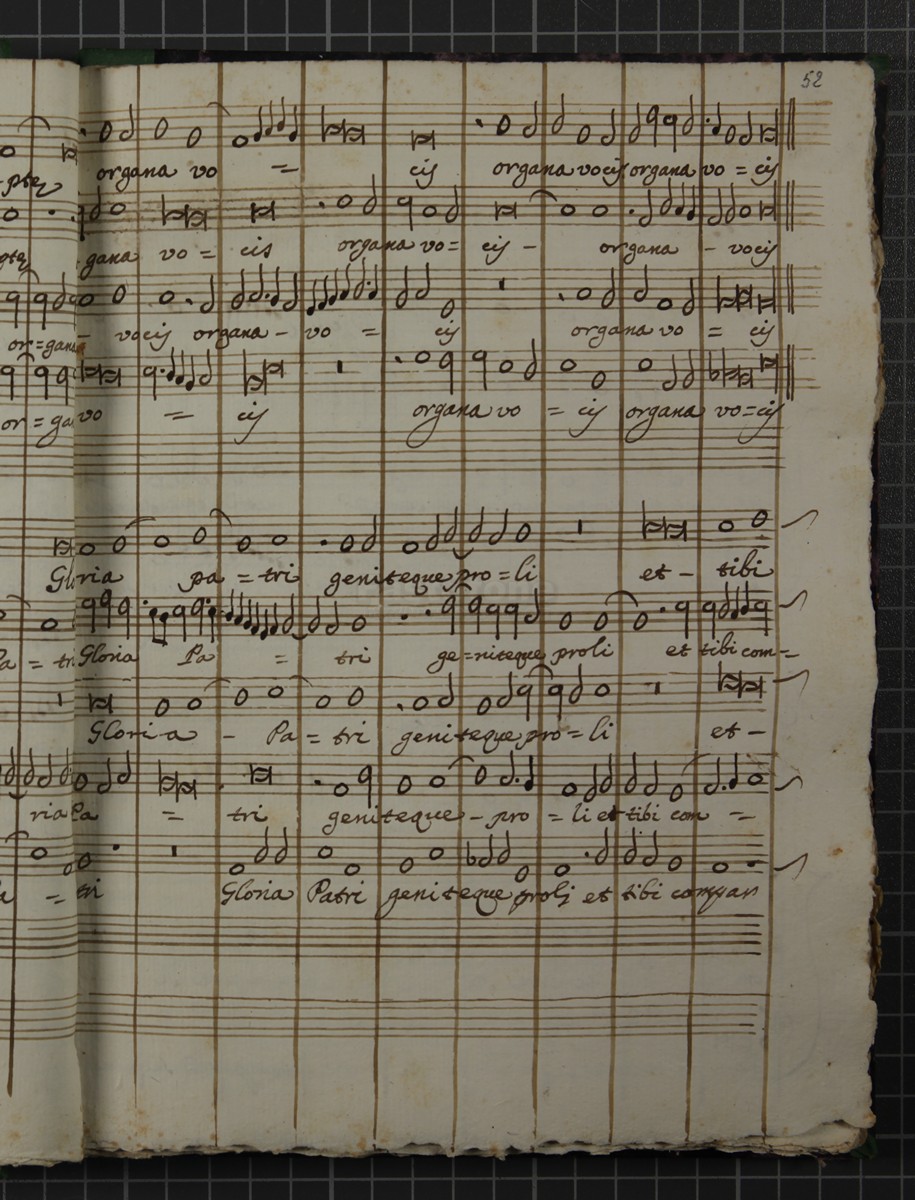 52
organa vo = cis organa vocis organa vo = cis
ptę
gana vo = cis organa vo = cis - organa - vocis
- vocis organa - vo = cis organa vo = cis
or=gana
or = ga vo = cis organa vo = cis organa vo=cis
Gloria pa = tri geniteque pro = li et - tibi
Pa = tri Gloria Pa = tri ge=niteque proli et tibi com=
Gloria - Pa = tri geniteque pro = li et -
ria Pa = tri geniteque - pro = li et tibi com =
= tri Gloria Patri geniteque proli et tibi compar